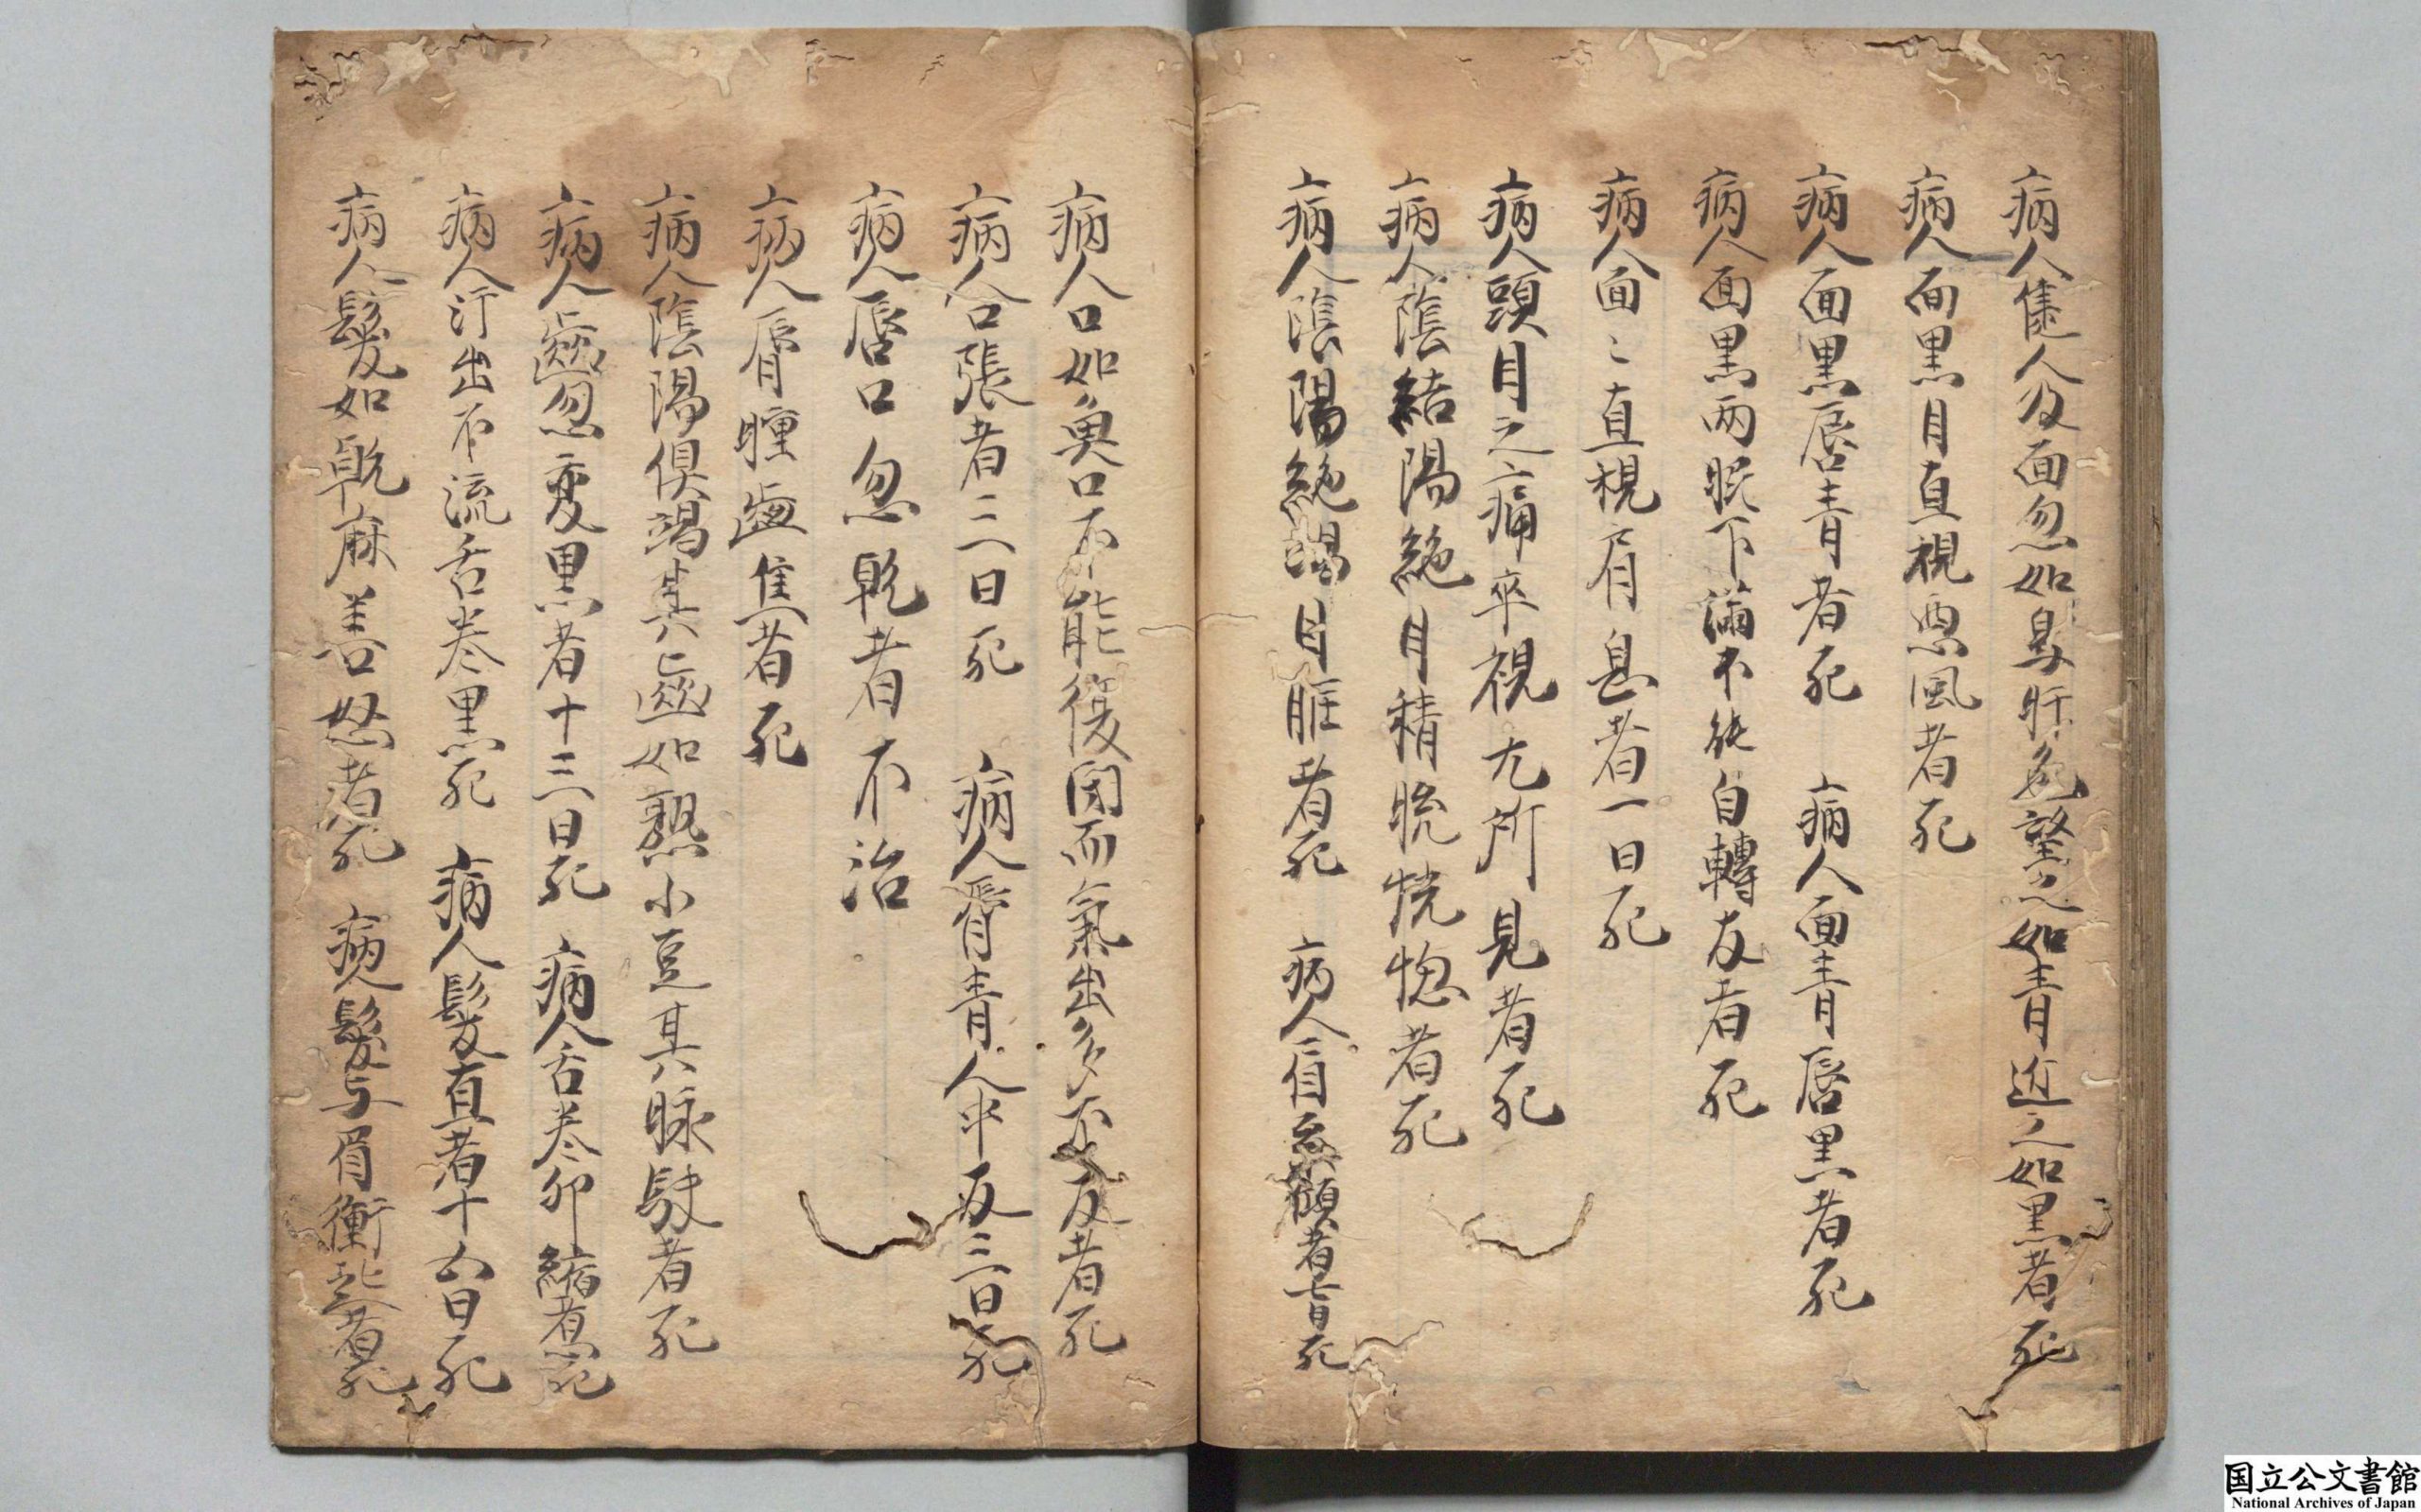 病人健人及面忽如馬肝色望之如青近之如黒者死
病人面黒目直視悪風者死
病人面黒唇青者死 病人面青唇黒者死
病人面黒両脇下満不能自轉反者死
病人面〻直視肩息者一日死
病人頭目之痛卒視无所見者死
病人陰結陽絶目精脱恍惚者死
病人陰陽絶竭目眶者死 病人眉系傾者七日死
病人口如魚口不能復閉而氣出多不反者死
病人口張者三日死 病人唇青人中反三日死
病人唇口忽乾者不治
病人脣腫齒焦者死
病人陰陽倶竭其齒如熟小豆其脉駃者死
病人齒忽変黒者十三日死 病人舌巻卵縮者死
病人汗出不流舌巻黒死 病人髪直者十五日死
病人髪如乾麻善怒者死 病人髪与眉衝起者死
国立公文書館
National Archives of Japan